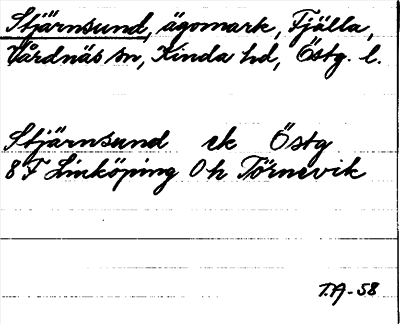 Stjärnsund, ägomark, Fjälla,
Vårdnäs sn, Kinda hd, Östg. l.
Stjärnsund ek Östg
8 F Linköping 0 h Törnevik
T.A-58